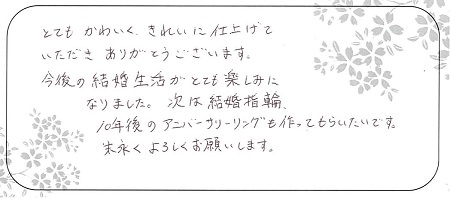 とても かわいく、きれいに仕上げて
いただき ありがとうございます。
今後の結婚生活がとても楽しみに
なりました。次は結婚指輪、
10年後のアニバーサリーリングも作ってもらいたいです。
末永くよろしくお願いします。